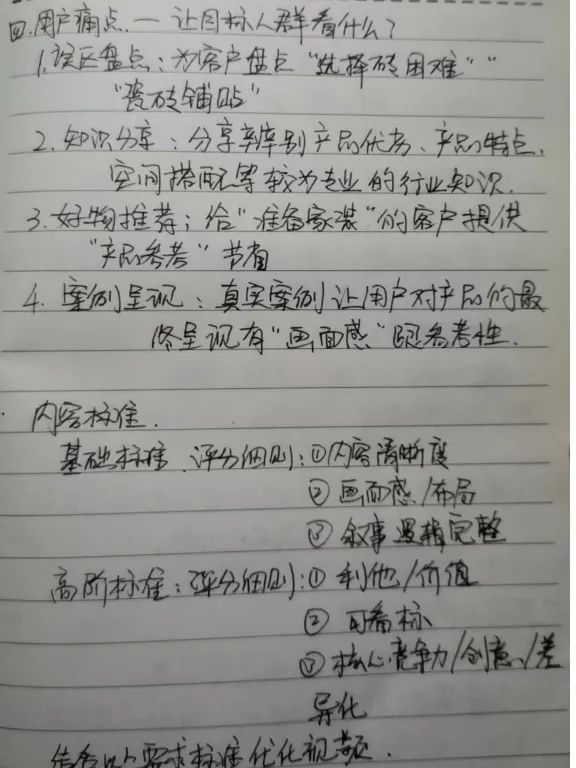 四.用户痛点.一让目标人群看什么?
1.误区盘点:为客户盘点“选择砖困难”“
“瓷砖铺贴”
2.知识分享:分享辨别产品优劣、产品特点、
空间搭配等较为专业的行业知识.
3.好物推荐;给“准备家装”的客户提供
“产品参考”节省
4.案例呈现:真实案例让用户对产品的最
终呈现有“画面感”跟参考性.
内容标准.
基础标准.评分细则:①内容清晰度
②画面感/布局
③叙事逻辑完整
高阶标准:评分细则:①利他/价值
②可看标
③核心竞争力/创意/差
异化
结合以上要求标准优化视频.